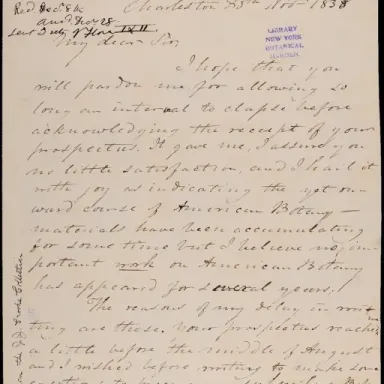 Red. Dec. 8
Charleston 28th Nov. 1838
ansd. Decr. 28
LIBRARY
NEW YORK
BOTANICAL
GARDEN
My dear Sir,
I hope that you
will pardon me for allowing so
long an interval to elapse before
acknowledging the receipt of your
prospectus. It gave me, I assure you
no little satisfaction, and I hail it
with joy as indicating the yet on-
ward course of American Botany —
materials have been accumulating
for some time but I believe no im-
portant work on American Botany
has appeared for several years.
The reasons of my delay in wri-
ting are these. Your prospectus reached
a little before the middle of August
and I wished before writing to make some